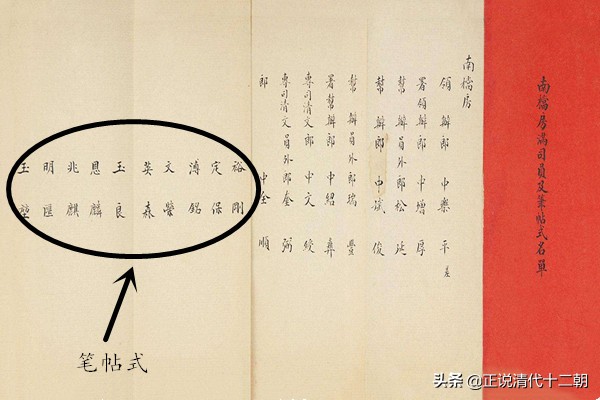 南檔房滿司員及筆帖式名單
南檔房
領辦郎中樂平 差
署領辦郎中增厚
幫辦員外郎松廷
幫辦郎中誠俊
幫辦員外郎瑞豐
署幫辦郎中紹彝
專司清文郎中文綬
專司清文員外郎奎弼
郎中全順
裕剛
定保
溥銘
文榮
英森
玉良
恩麟
兆麒
明匯
玉堃
笔帖式
头条 @正说清代十二朝